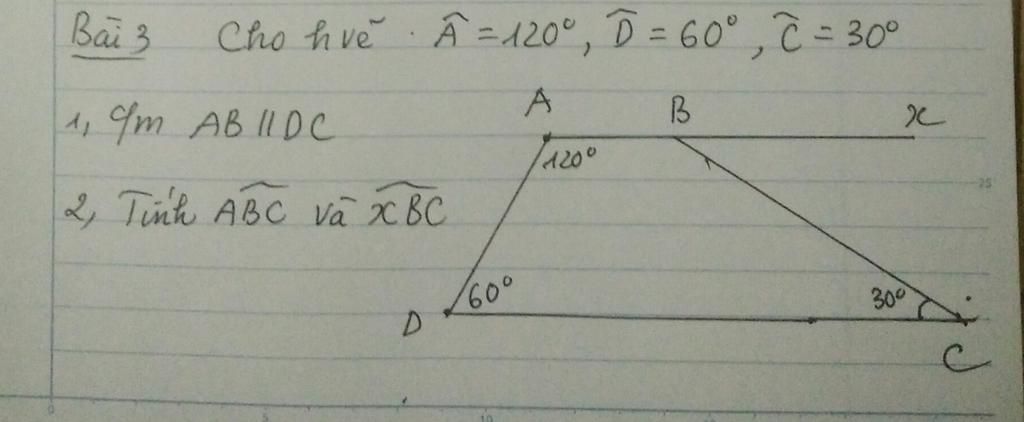 Bài 3 Cho h vẽ . Â = 120°, D̂ = 60°, Ĉ = 30°
1, c/m AB // DC
2, Tính ABC và xBC
A B x
120°
60° 30°
D C
25
0 5 10